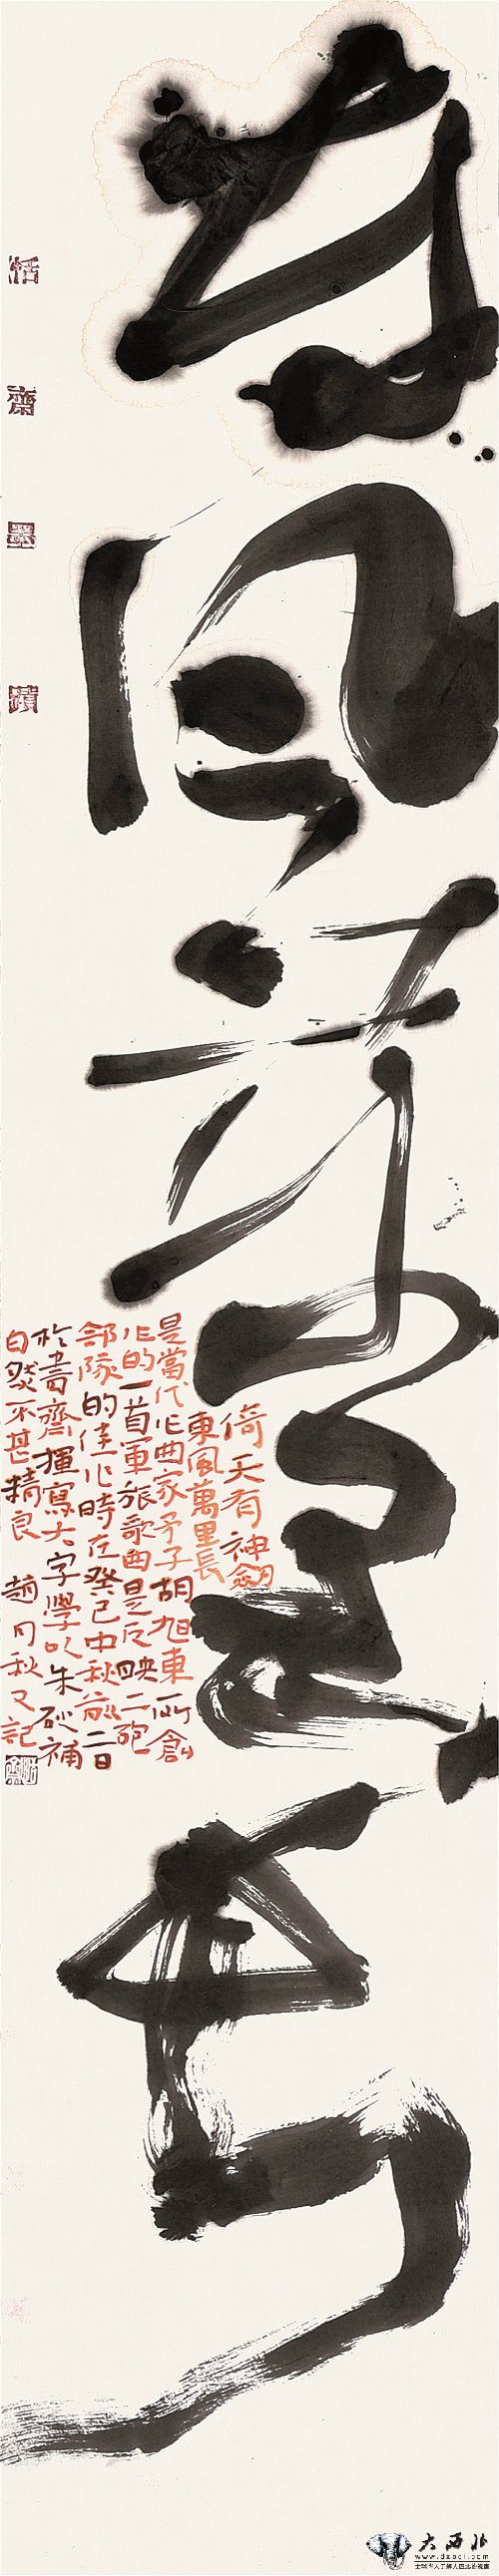 东风万里长
倚天有神劒
東風萬里長
是當代作曲家矛子胡旭東所創
作的一首軍旅歌曲是反映二砲
部隊的佳作時在癸巳中秋前二日
於書齋揮寫大字學以朱砂補
白然不甚精良 趙月秋又記
恬
齋
墨
蹟
大西北
www.dxbei.com